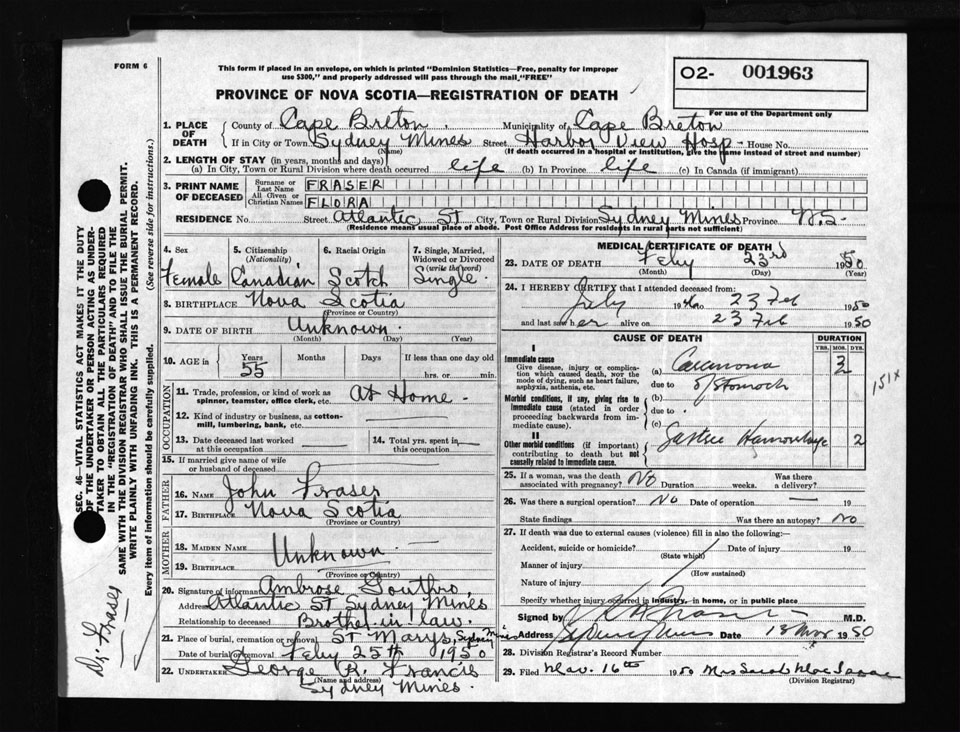 FORM 6
This form if placed in an envelope, on which is printed "Dominion Statistics—Free, penalty for improper
use $300," and properly addressed will pass through the mail, "FREE"
O2- 001963
For use of the Department only
PROVINCE OF NOVA SCOTIA—REGISTRATION OF DEATH
1. PLACE OF DEATH County of Cape Breton. Municipality of Cape Breton
If in City or Town Sydney Mines Street Harbor View Hosp- House No.
(Name) (If death occurred in a hospital or institution, give the name instead of street and number)
2. LENGTH OF STAY (in years, months and days)
(a) In City, Town or Rural Division where death occurred life (b) In Province life (c) In Canada (if immigrant)
3. PRINT NAME OF DECEASED Surname or Last Name FRASER
All Given or Christian Names FLORA
RESIDENCE No. Street Atlantic St City, Town or Rural Division Sydney Mines Province N.S-
(Residence means usual place of abode. Post Office Address for residents in rural parts not sufficient)
4. Sex 5. Citizenship (Nationality) 6. Racial Origin 7. Single, Married, Widowed or Divorced (write the word)
Female Canadian Scotch Single.
8. BIRTHPLACE Nova Scotia
(Province or Country)
9. DATE OF BIRTH Unknown.
(Month) (Day) (Year)
10. AGE in Years Months Days If less than one day old
55 hrs. or min.
11. Trade, profession, or kind of work as
spinner, teamster, office clerk, etc. At Home.
12. Kind of industry or business, as cotton-
mill, lumbering, bank, etc.
13. Date deceased last worked at this occupation 14. Total yrs. spent in this occupation
15. If married give name of wife
or husband of deceased
FATHER
16. NAME John Fraser
17. BIRTHPLACE Nova Scotia
(Province or Country)
MOTHER
18. MAIDEN NAME Unknown
19. BIRTHPLACE
(Province or Country)
20. Signature of informant Ambrose Gouthro
Address Atlantic St Sydney Mines
Relationship to deceased Brother-in law.
21. Place of burial, cremation or removal St Marys, Sydney Mines
Date of burial or removal Feby 25th 1950
22. UNDERTAKER George R. Francis
(Name and address)
Sydney Mines.
MEDICAL CERTIFICATE OF DEATH
23. DATE OF DEATH Feby 23rd 1950
(Month) (Day) (Year)
24. I HEREBY CERTIFY that I attended deceased from:
23 Feb 1950
and last saw her alive on 23 Feb 1950
CAUSE OF DEATH DURATION
YRS. MOS. DYS.
I
Immediate cause
Give disease, injury or complica-
tion which caused death, NOT the
mode of dying, such as heart failure,
asphyxia, asthenia, etc.
(a) Carcinoma
due to of Stomach
Morbid conditions, if any, giving rise to
immediate cause (stated in order
proceeding backwards from im-
mediate cause).
(b)
due to
(c)
II
Other morbid conditions (if important)
contributing to death but not
causally related to immediate cause.
Gastric Hemorrhage 2
151X
25. If a woman, was the death
associated with pregnancy? No Duration weeks. Was there a delivery?
26. Was there a surgical operation? No Date of operation — 19
State findings Was there an autopsy? No
27. If death was due to external causes (violence) fill in also the following:
Accident, suicide or homicide? Date of injury 19
(State which)
Manner of injury
(How sustained)
Nature of injury
Specify whether injury occurred in industry, in home, or in public place
Signed by M.D.
Address Sydney Mines Date 13 Mar 1950
28. Division Registrar's Record Number
29. Filed Mar. 16th 1950 Mrs Sarah
(Division Registrar)
SEC. 46—VITAL STATISTICS ACT MAKES IT THE DUTY
OF THE UNDERTAKER OR PERSON ACTING AS UNDER-
TAKER TO OBTAIN ALL THE PARTICULARS REQUIRED
IN THE "REGISTRATION OF DEATH" AND TO FILE THE
SAME WITH THE DIVISION REGISTRAR WHO SHALL ISSUE THE BURIAL PERMIT.
WRITE PLAINLY WITH UNFADING INK. THIS IS A PERMANENT RECORD.
Every item of information should be carefully supplied. (See reverse side for instructions.)
Dr. Fraser